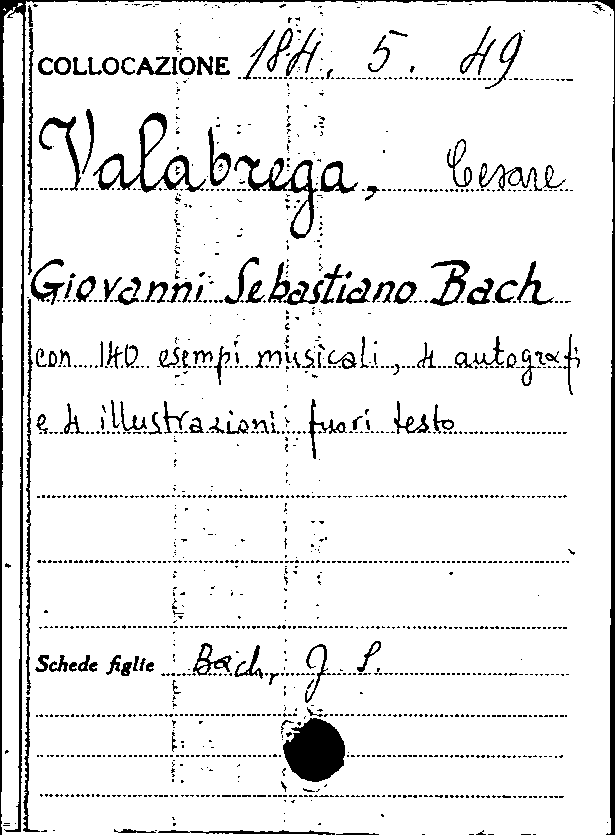 COLLOCAZIONE 184. 5. 49
Valabrega, Cesare
Giovanni Sebastiano Bach
con 140 esempi musicali, 4 autografi
e 4 illustrazioni fuori testo
Schede figlie Bach, J. S.